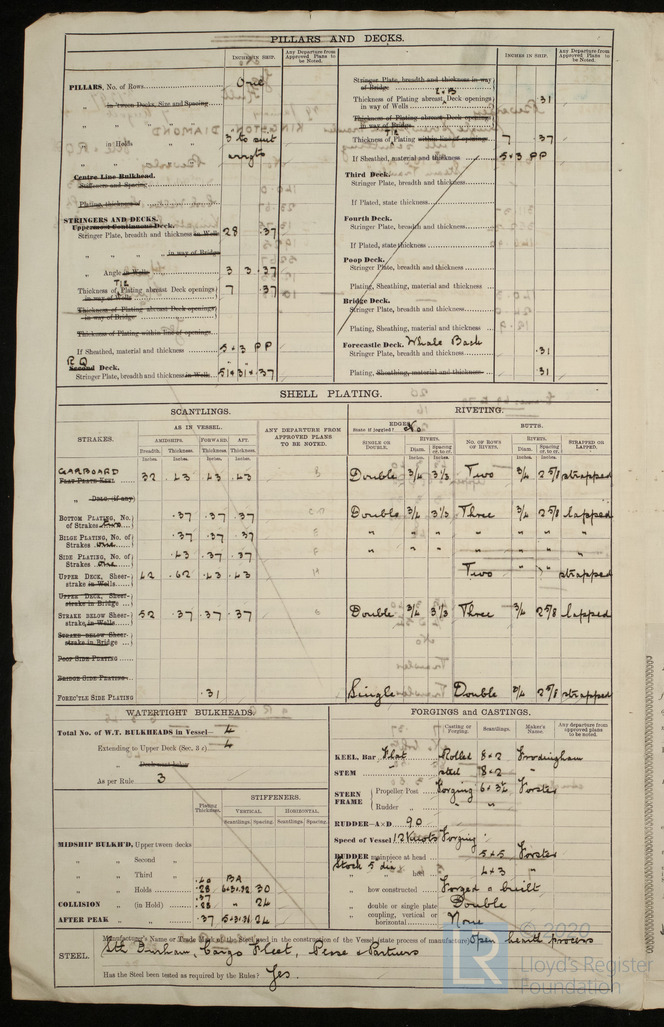 PILLARS AND DECKS.
INCHES IN SHIP.
Any Departure from Approved Plans to be Noted.
PILLARS, No. of Rows One
" in Tween Decks, Size and Spacing
" in Holds 3 to suit
Centre Line Bulkhead.
Stiffeners and Spacing
Plating, thickness of
STRINGERS AND DECKS.
Uppermost Continuous Deck.
Stringer Plate, breadth and thickness in Wells 28 .37
" " in way of Bridge
" Angle in Wells 3 3 .37
Thickness of Plating abreast Deck openings in way of Wells 7 .37
Thickness of Plating abreast Deck openings in way of Bridge
Thickness of Plating within line of openings
If Sheathed, material and thickness 5 x 3 PP
R Q
Second Deck.
Stringer Plate, breadth and thickness in Wells 51 x 31 x .37
INCHES IN SHIP.
Any Departure from Approved Plans to be Noted.
Stringer Plate, breadth and thickness in way of Bridge
Thickness of Plating abreast Deck openings in way of Wells .31
Thickness of Plating abreast Deck openings in way of Bridge
Thickness of Plating within line of openings 7 .37
If Sheathed, material and thickness 5 x 3 PP
Third Deck.
Stringer Plate, breadth and thickness
If Plated, state thickness
Fourth Deck.
Stringer Plate, breadth and thickness
If Plated, state thickness
Poop Deck.
Stringer Plate, breadth and thickness
Plating, Sheathing, material and thickness
Bridge Deck.
Stringer Plate, breadth and thickness
Plating, Sheathing, material and thickness
Forecastle Deck. Whale Back
Stringer Plate, breadth and thickness .31
Plating, Sheathing, material and thickness .31
SHELL PLATING.
SCANTLINGS.
RIVETING.
STRAKES.
AS IN VESSEL.
AMIDSHIPS. FORWARD. AFT.
Breadth. Thickness. Thickness. Thickness.
Inches. Inches. Inches. Inches.
ANY DEPARTURE FROM APPROVED PLANS TO BE NOTED.
EDGES.
State if joggled? No
SINGLE OR DOUBLE.
RIVETS.
Diam. Spacing cr. to cr.
BUTTS.
NO. OF ROWS OF RIVETS.
RIVETS.
Diam. Spacing cr. to cr.
STRAPPED OR LAPPED.
GARBOARD 32 .43 .43 .43 Double 3/4 3 1/3 Two 3/4 2 5/8 strapped
Flat Plate Keel
" Dblg. (if any)
BOTTOM PLATING, No. of Strakes .37 .37 .37 Double 3/4 3 1/3 Three 3/4 2 5/8 lapped
BILGE PLATING, No. of Strakes one .37 .37 .37 " " " " " " "
SIDE PLATING, No. of Strakes one .43 .37 .37 " " " " " " "
UPPER DECK, Sheerstrake in Wells 42 .62 .43 .43 Two " " strapped
UPPER DECK, Sheerstrake in Bridge
STRAKE BELOW SHEERstrake in Wells 52 .37 .37 .37 Double 3/4 3 1/3 Three 3/4 2 5/8 lapped
STRAKE BELOW SHEERstrake in Bridge
POOP SIDE PLATING
BRIDGE SIDE PLATING
FOREC'TLE SIDE PLATING .31 Single Double 3/4 2 5/8 strapped
WATERTIGHT BULKHEADS.
Total No. of W.T. BULKHEADS in Vessel 4
Extending to Upper Deck (Sec. 3 c) 4
As per Rule 3
Plating Thickness.
STIFFENERS.
VERTICAL. HORIZONTAL.
Scantlings. Spacing. Scantlings. Spacing.
MIDSHIP BULKH'D, Upper tween decks
" " Second "
" " Third "
.40 BA
" " Holds .28 6 x 3 x .32 30
.37
COLLISION " (in Hold) .28 " 24
AFTER PEAK " " .37 5 x 3 x .31 24
FORGINGS and CASTINGS.
Casting or Forging. Scantlings. Maker's Name. Any departure from approved plans to be noted.
KEEL, Bar Flat Rolled 8 x 2 Frodingham
STEM steel 8 x 2 "
STERN FRAME
Propeller Post Forging 6 x 3 1/2 Forster
Rudder " " "
RUDDER—A x D 90
Speed of Vessel 12 Knots Forging
RUDDER mainpiece at head 5 x 5 Forster
Stock 5 dia
" " heel 4 x 3 "
" how constructed Forged & built
" double or single plate Double
" coupling, vertical or horizontal None
STEEL.
Manufacturer's Name or Trade Mark of the Steel used in the construction of the Vessel (state process of manufacture) Open hearth process
Sth Durham, Cargo Fleet, Pease & Partners
Has the Steel been tested as required by the Rules? Yes.
© 2020
LR
Lloyd's Register
Foundation